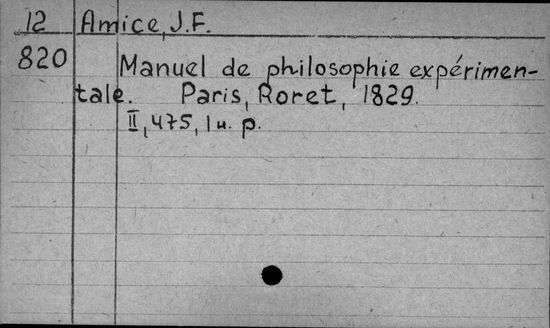 12 Amice, J.F.
820 Manuel de philosophie expérimen-
tale. Paris, Roret, 1829.
II, 475, 1 u. p.